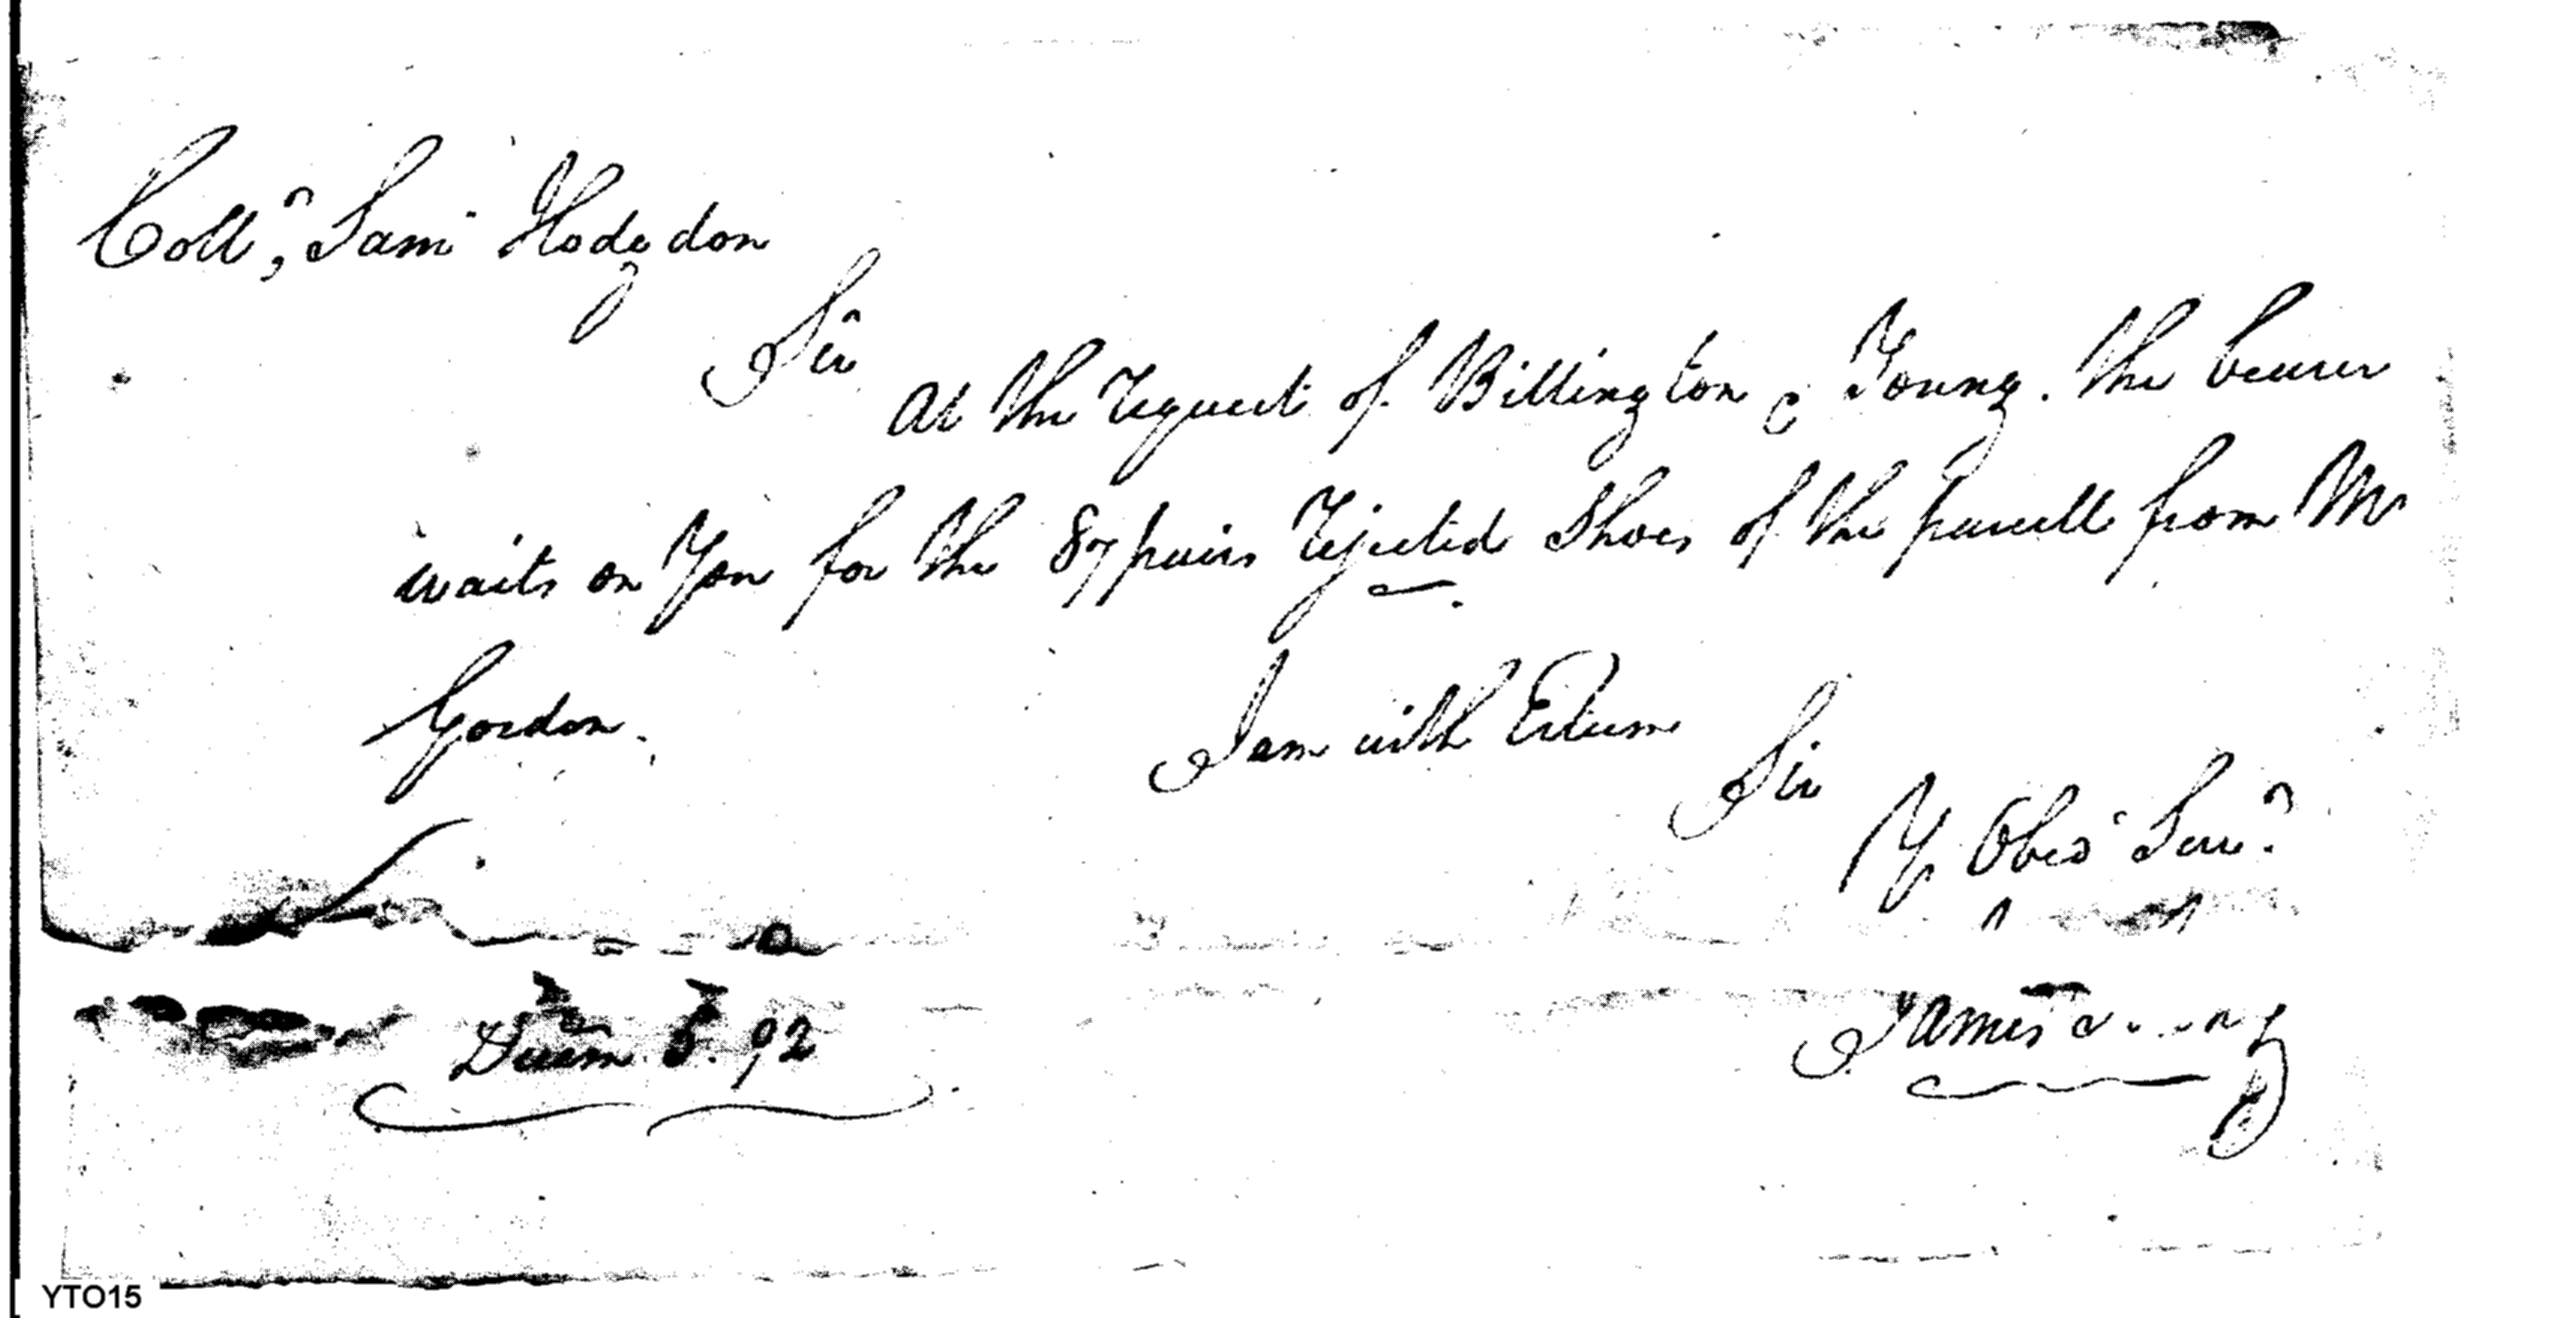 Coll,, Sam Hodgdon
Sir
At the request of Billington & Young. the bearer
waits on You for the 87 pairs rejected Shoes of the parcell from Mr
Gordon.
I am with Esteem
Sir
Yr Obed Serv
Decem 5. 92
James
YTO15